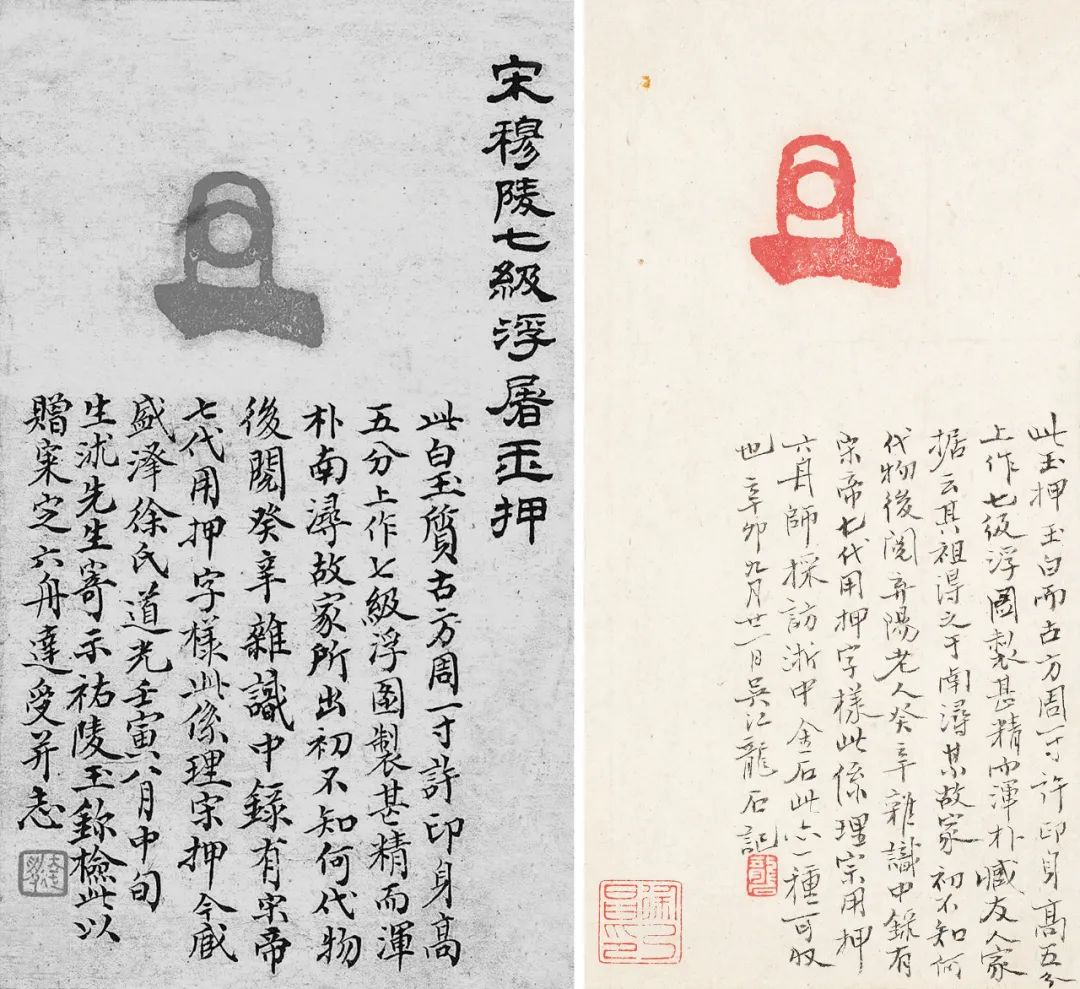 宋穆陵七級浮屠玉押
此白玉質古方周一寸許印身高
五分上作七級浮圖製甚精而渾
朴南潯故家所出初不知何代物
後閱癸辛雜識中錄有宋帝
七代用押字樣此係理宗押今臧
盛澤徐氏道光壬寅八月中旬
生沭先生寄示祐陵玉鉨檢此以
贈案定六舟達受并志
此玉押玉白而古方周一寸許印身高五分
上作七級浮圖製甚精而渾朴臧友人家
据云其祖得之于南潯某故家初不知何
代物後閱弁陽老人癸辛雜識中錄有
宋帝七代用押字樣此係理宗用押
六舟師採訪浙中金石此亦一種可收
也辛卯九月廿一日吳江龍石記
龍石
徐乃昌印